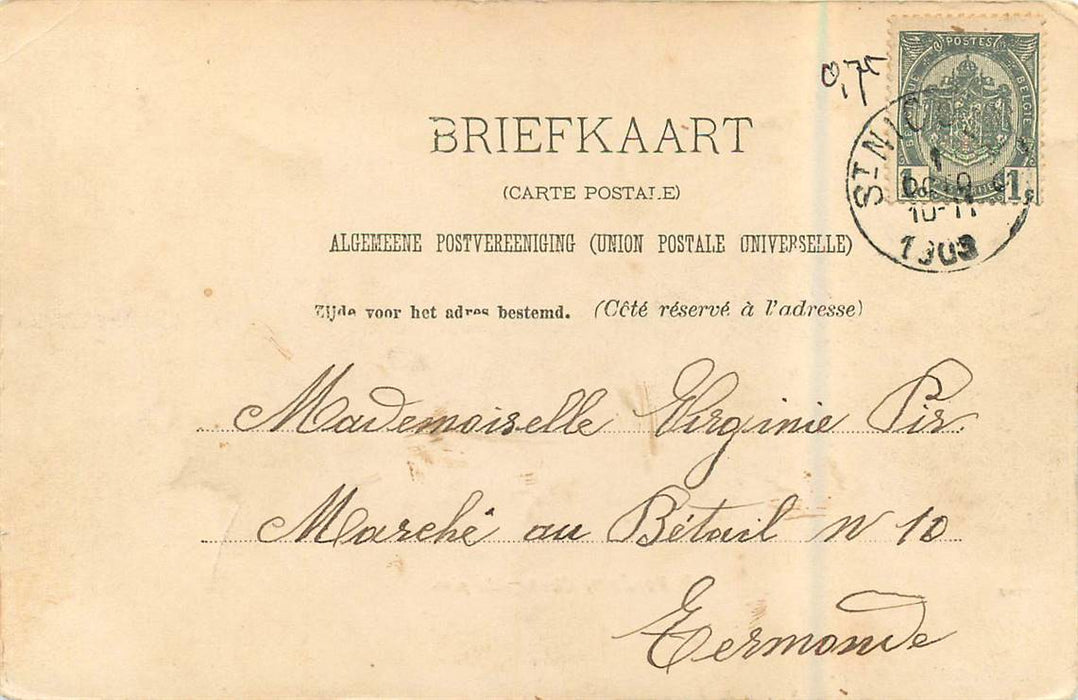 0,75
POSTES
BELGIE
1 1
ST-NIC
1
10-11
1903
BRIEFKAART
(CARTE POSTALE)
ALGEMEENE POSTVEREENIGING (UNION POSTALE UNIVERSELLE)
Zijde voor het adres bestemd. (Côté réservé à l'adresse)
Mademoiselle Virginie Pir
Marché au Bétail N 10
Termonde